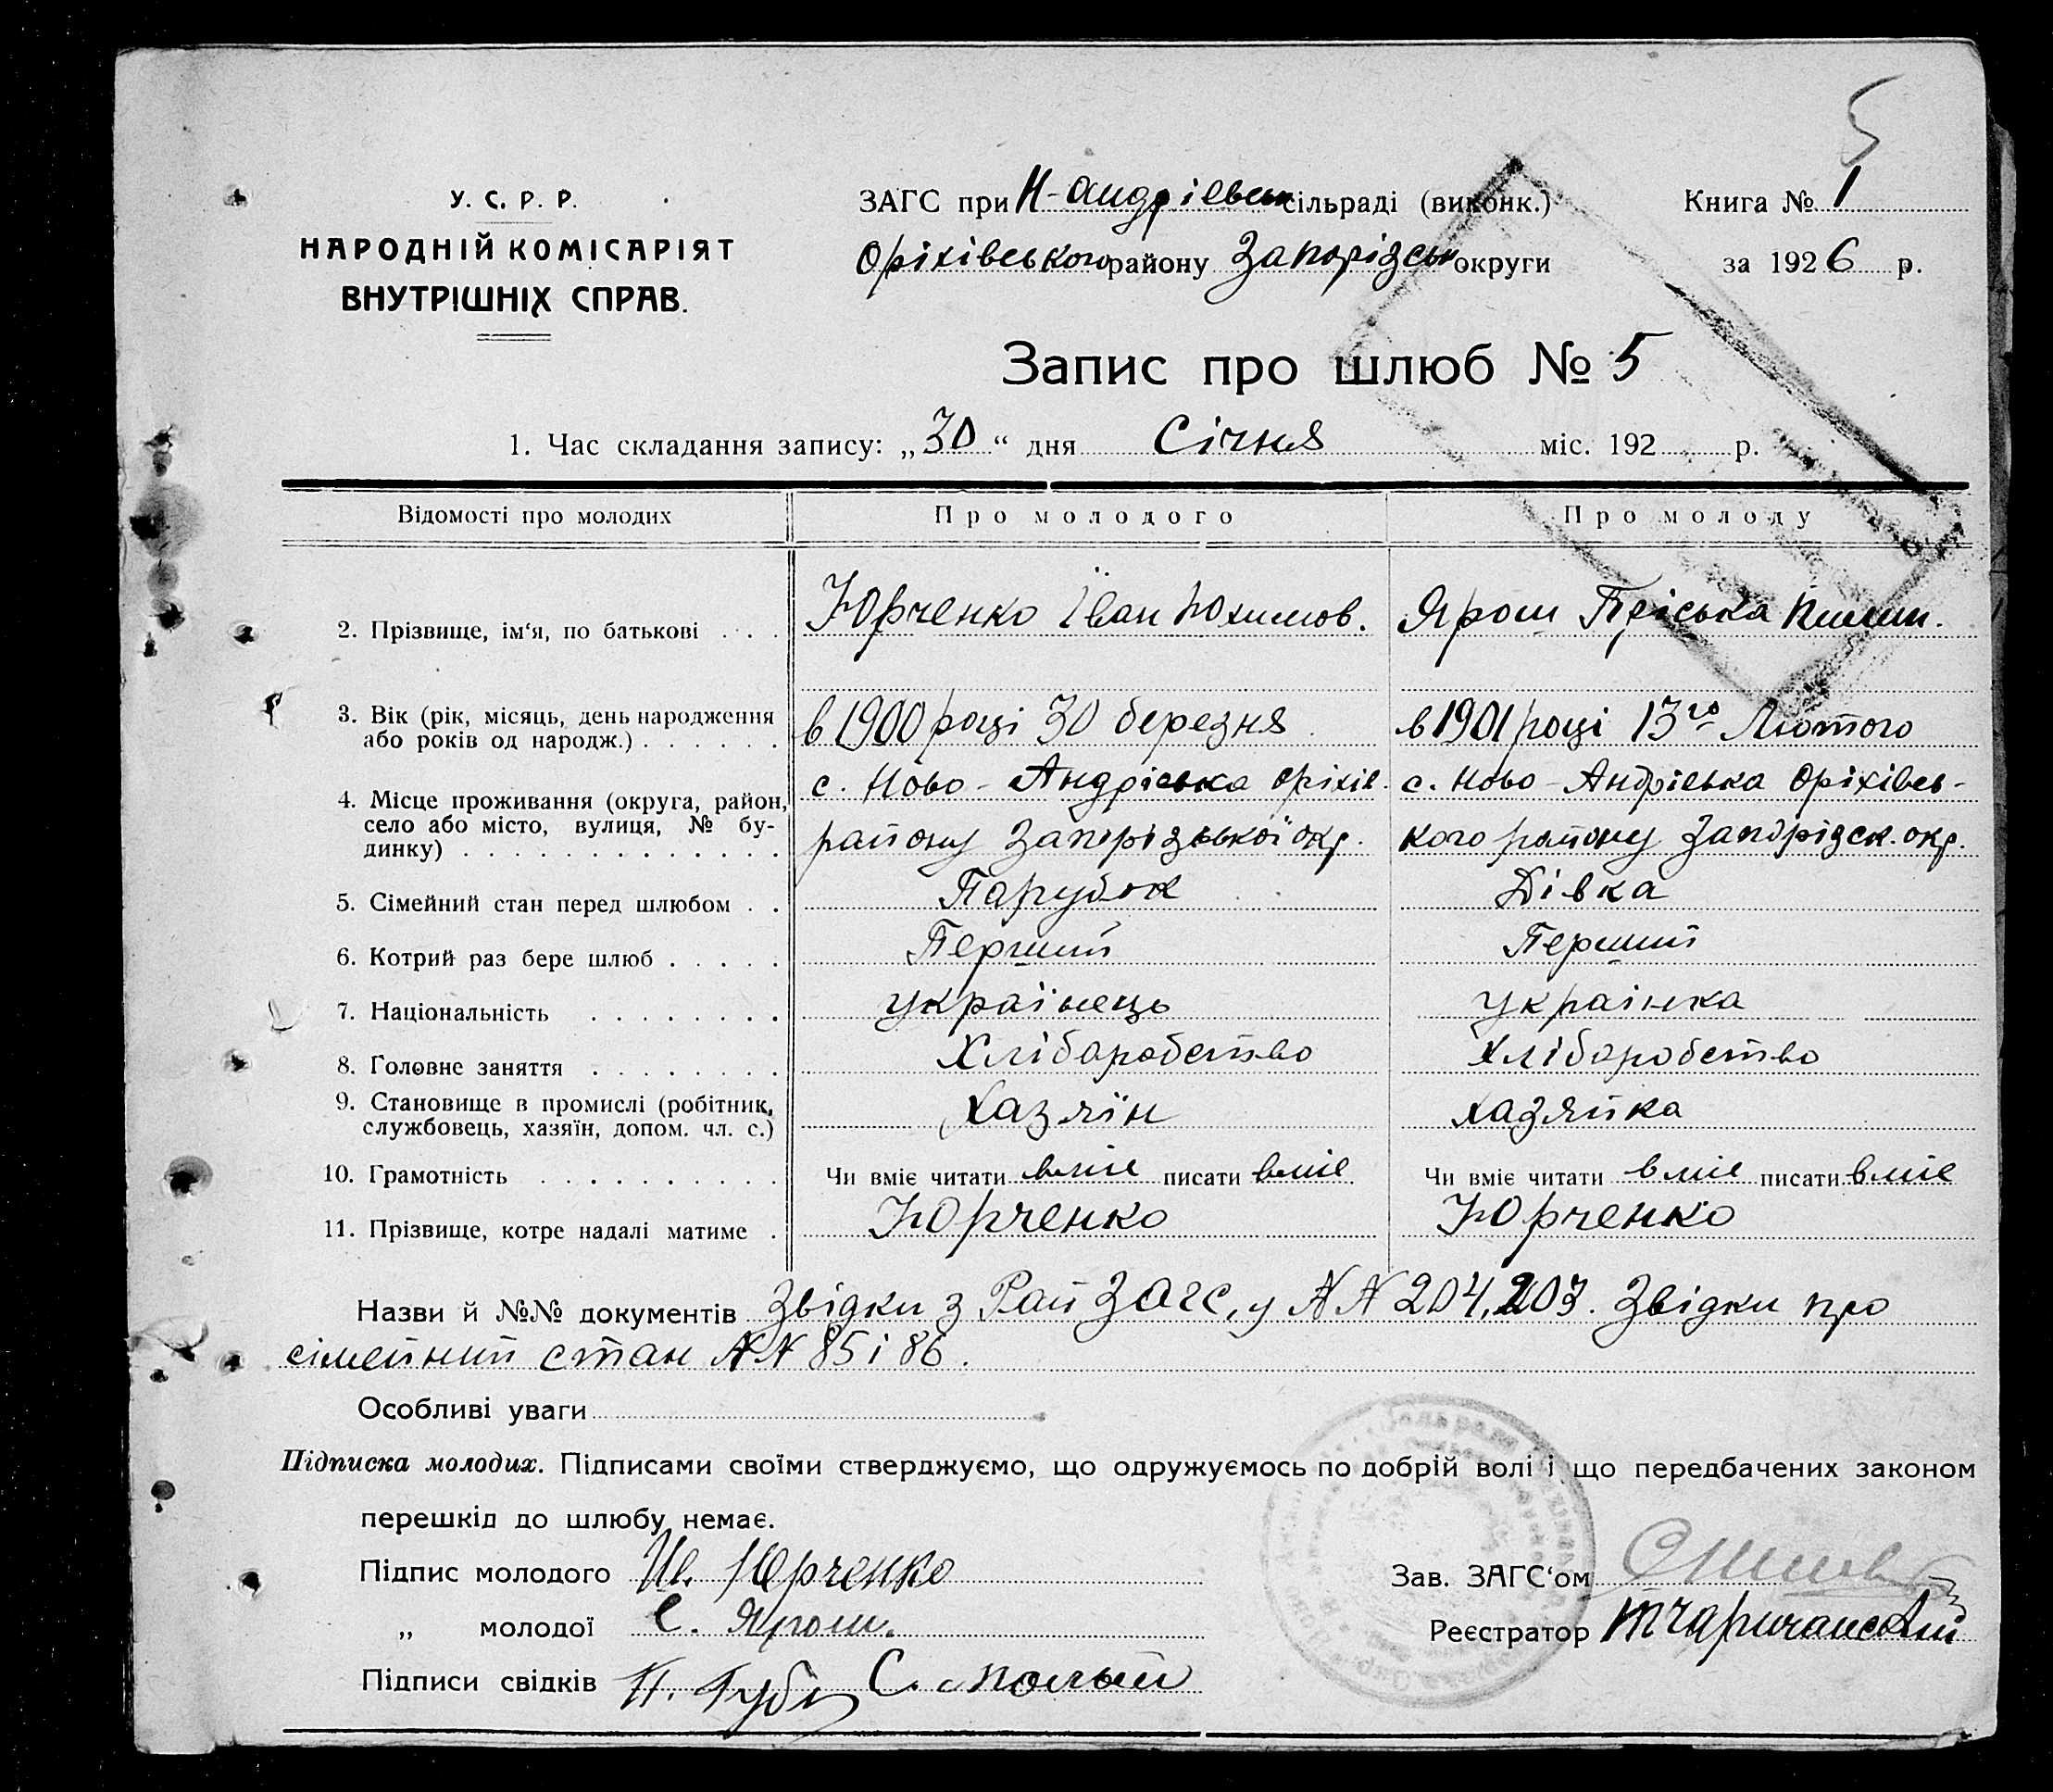 5
У. С. Р. Р.
НАРОДНІЙ КОМІСАРІЯТ
ВНУТРІШНІХ СПРАВ.
ЗАГС при Н-Андріевськ сільраді (виконк.)
Оріхівського району Запорізськ округи
Книга № 1
за 1926 р.
Запис про шлюб № 5
1. Час складання запису: „30“ дня Січня міс. 192 р.
Відомості про молодих Про молодого Про молоду
2. Прізвище, ім‘я, по батькові . . . Юрченко Їван Юхимов. Ярош Пріська
3. Вік (рік, місяць, день народження
або років од народж.) . . . . . . в 1900 році 30 березня в 1901 році 13го Лютого
4. Місце проживання (округа, район, с. Ново-Андрієвка Оріхів. с. Ново-Андрієвка Оріхівсь-
село або місто, вулиця, № бу- району Запорізької окр. кого району Запорізск. окр.
динку) . . . . . . . . . . . . .
5. Сімейний стан перед шлюбом . . Парубок Дівка
6. Котрий раз бере шлюб . . . . . Перший Перший
7. Національність . . . . . . . . українець українка
8. Головне заняття . . . . . . . . Хліборобство Хліборобство
9. Становище в промислі (робітник, Хазяїн хазяйка
службовець, хазяїн, допом. чл. с.)
10. Грамотність . . . . . . . . . . Чи вміє читати вміє писати вміє Чи вміє читати вміє писати вміє
11. Прізвище, котре надалі матиме . Юрченко Юрченко
Назви й №№ документів Звідки з Рай ЗАГС,у NN 204,203. Звідки про
сімейний стан NN 85 і 86.
Особливі уваги
Підписка молодих. Підписами своїми стверджуємо, що одружуємось по добрій волі і що передбачених законом
перешкід до шлюбу немає.
Підпис молодого Ив. Юрченко
„ молодої Є. Ярош.
Підписи свідків П. Губа С. Малый
Зав. ЗАГС‘ом
Реєстратор